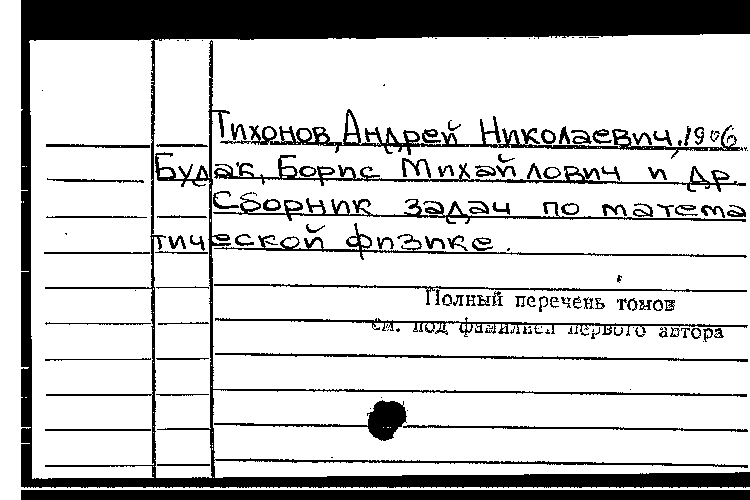 Тихонов, Андрей Николаевич, 1906
Будак, Борис Михайлович и др.
Сборник задач по матема
тической физике.
Полный перечень томов
см. под фамилией первого автора